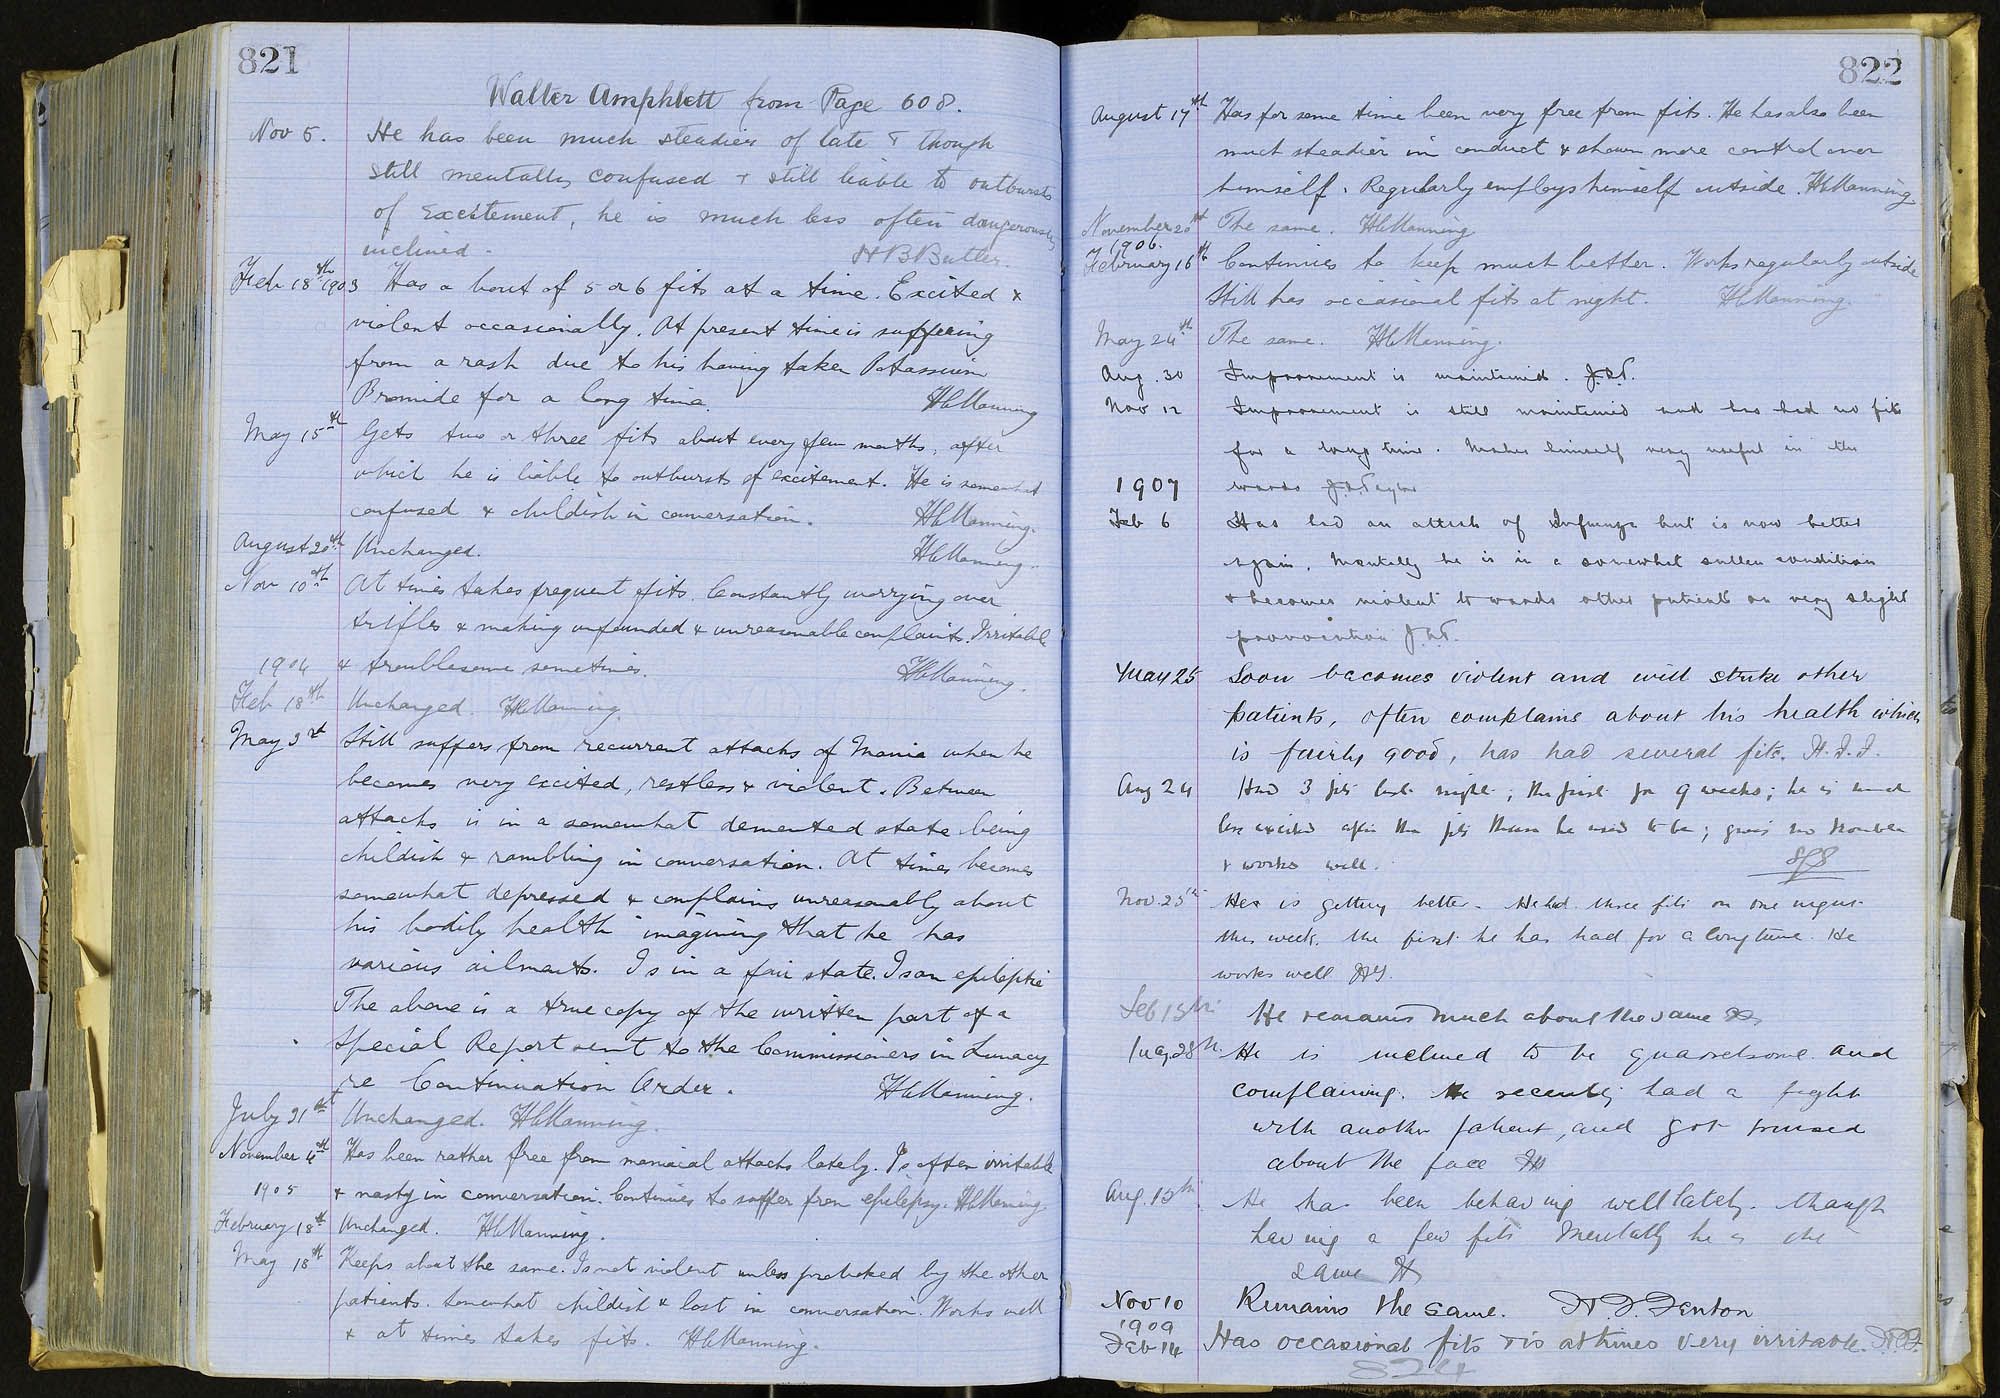 821
Walter Amphlett from Page 608.
Nov 5. He has been much steadier of late & though
still mentally confused & still liable to outbursts
of Excitement, he is much less often dangerously
inclined. H B Butler.
Feb 18th 1903 Has a bout of 5 or 6 fits at a time. Excited &
violent occasionally. At present time is suffering
from a rash due to his having taken Potassium
Bromide for a long time. HCManning
May 15th Gets two or three fits about every few months, after
which he is liable to outbursts of excitement. He is somewhat
confused & childish in conversation. HCManning.
August 20th Unchanged. HCManning.
Nov 10th At times takes frequent fits. Constantly worrying over
trifles & making unfounded & unreasonable complaints. Irritable
1904 & troublesome sometimes. HCManning.
Feb 18th Unchanged. HCManning.
May 3rd Still suffers from recurrent attacks of Mania when he
becomes very excited, restless & violent. Between
attacks is in a somewhat demented state being
childish & rambling in conversation. At times becomes
somewhat depressed & complains unreasonably about
his bodily health imagining that he has
various ailments. Is in a fair state. Is an epileptic
The above is a true copy of the written part of a
Special Report sent to the Commissioners in Lunacy
re Continuation Order. HCManning.
July 31st Unchanged. HCManning.
November 4th Has been rather free from maniacal attacks lately. Is often irritable
1905 & nasty in conversation. Continues to suffer from epilepsy. HCManning
February 18th Unchanged. HCManning.
May 18th Keeps about the same. Is not violent unless provoked by the other
patients. Somewhat childish & lost in conversation. Works well
& at times takes fits. HCManning.
822
August 17th Has for some time been very free from fits. He has also been
much steadier in conduct & shown more control over
himself. Regularly employs himself outside. HCManning.
November 20th The same. HCManning
1906.
February 16th Continues to keep much better. Works regularly outside
Still has occasional fits at night. HCManning.
May 24th The same. HCManning.
Aug. 30 Improvement is maintained.
Nov 12 Improvement is still maintained and has had no fits
for a long time. Makes himself very useful in the
1907 wards
Feb 6 Has had an attack of Influenza but is now better
again. Mentally he is in a somewhat sullen condition
& becomes violent towards other patients on very slight
provocation
May 25 Soon becomes violent and will strike other
patients, often complains about his health which
is fairly good, has had several fits.
Aug 24 Had 3 fits last night; the first for 9 weeks; he is much
less excited after the fits than he used to be; gives no trouble
& works well.
Nov. 25th He is getting better. He had three fits on one night
this week, the first he has had for a long time. He
works well
Feb 15th He remains much about the same
28th He is inclined to be quarrelsome and
complaining. He recently had a fight
with another patient, and got bruised
about the face
Aug. 15th He has been behaving well lately though
having a few fits Mentally he is the
same
Nov 10 Remains the same. Fenton
1909
Feb 14 Has occasional fits & is at times very irritable.
824